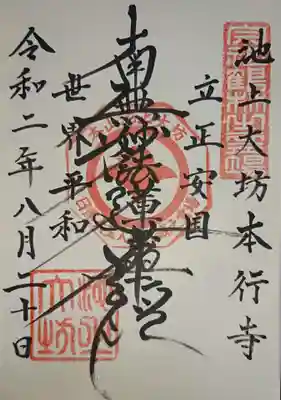 池上大坊本行寺
立正安国
南無妙法蓮華経
世界平和
令和二年八月二十日
池上
大坊